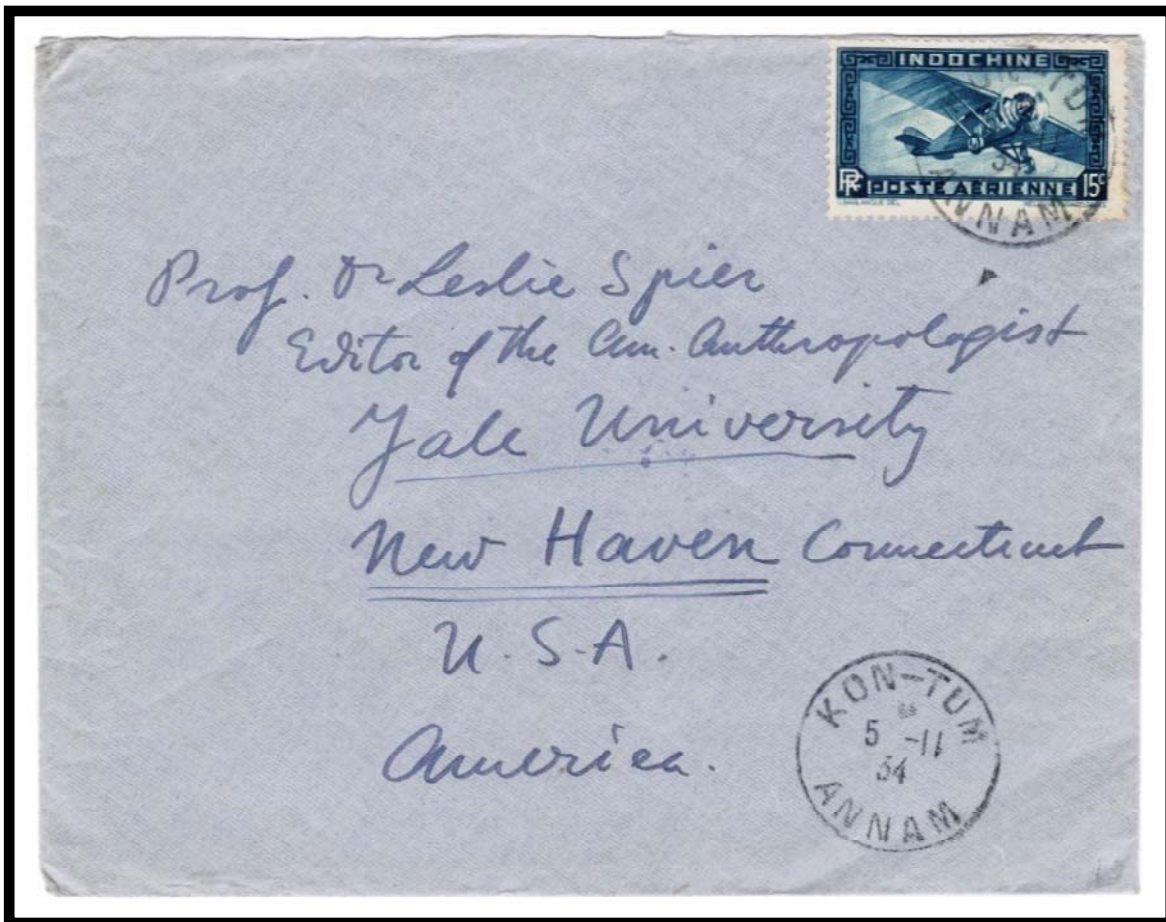 INDOCHINE
RF POSTE AÉRIENNE 15c
ANNAM
Prof. Dr Leslie Spier
Editor of the Am. Anthropologist
Yale University
New Haven Connecticut
U.S.A.
America.
KON-TUM
5 -11
34
ANNAM